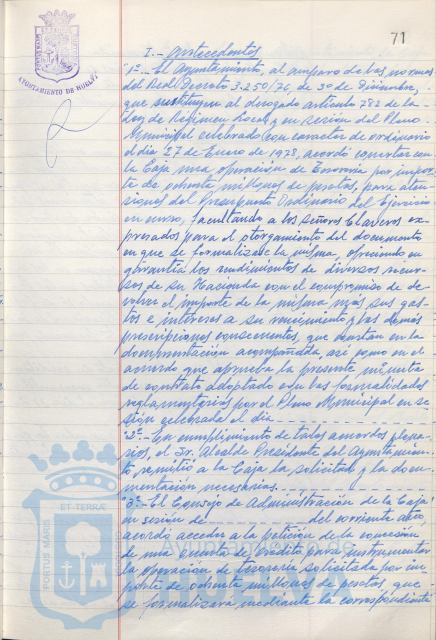 71
AYUNTAMIENTO DE HUELVA
I.- Antecedentes
"1º.- El Ayuntamiento, al amparo de las normas
del Real Decreto 3.250/76, de 30 de Diciembre,
que sustituyen al derogado artículo 782 de la
Ley de Régimen Local, y en sesión del Pleno
Municipal celebrado con caracter de ordinario
el dia 27 de Enero de 1978, acordó concertar con
la Caja una operación de Tesorería por impor-
te de ochenta millones de pesetas, para aten-
ciones del Presupuesto Ordinario del Ejercicio
en curso, facultando a los señores Claveros ex-
presados para el otorgamiento del documento
en que se formalizase la misma, ofreciendo en
garantía los rendimientos de diversos recur-
sos de su Hacienda con el compromiso de de-
volver el importe de la misma más sus gas-
tos e intereses a su vencimiento y las demás
prescripciones consecuentes, que constan en la
documentación acompañada así como en el
acuerdo que aprueba la presente minuta
de contrato adoptado con las formalidades
reglamentarias por el Pleno Municipal en se-
sión celebrada el dia
"2º.- En cumplimiento de tales acuerdos plena-
rios, el Sr. Alcalde Presidente del Ayuntamien-
to remitió a la Caja la solicitud y la docu-
mentación necesarias.
"3º.- El Consejo de Administración de la Caja
en sesión de del corriente año,
acordó acceder a la petición de la concesión
de una cuenta de crédito para instrumentar
la operación de tesorería solicitada por im-
porte de ochenta millones de pesetas que
se formalizará mediante la correspondiente
ET TERRÆ
PORTUS MARIS